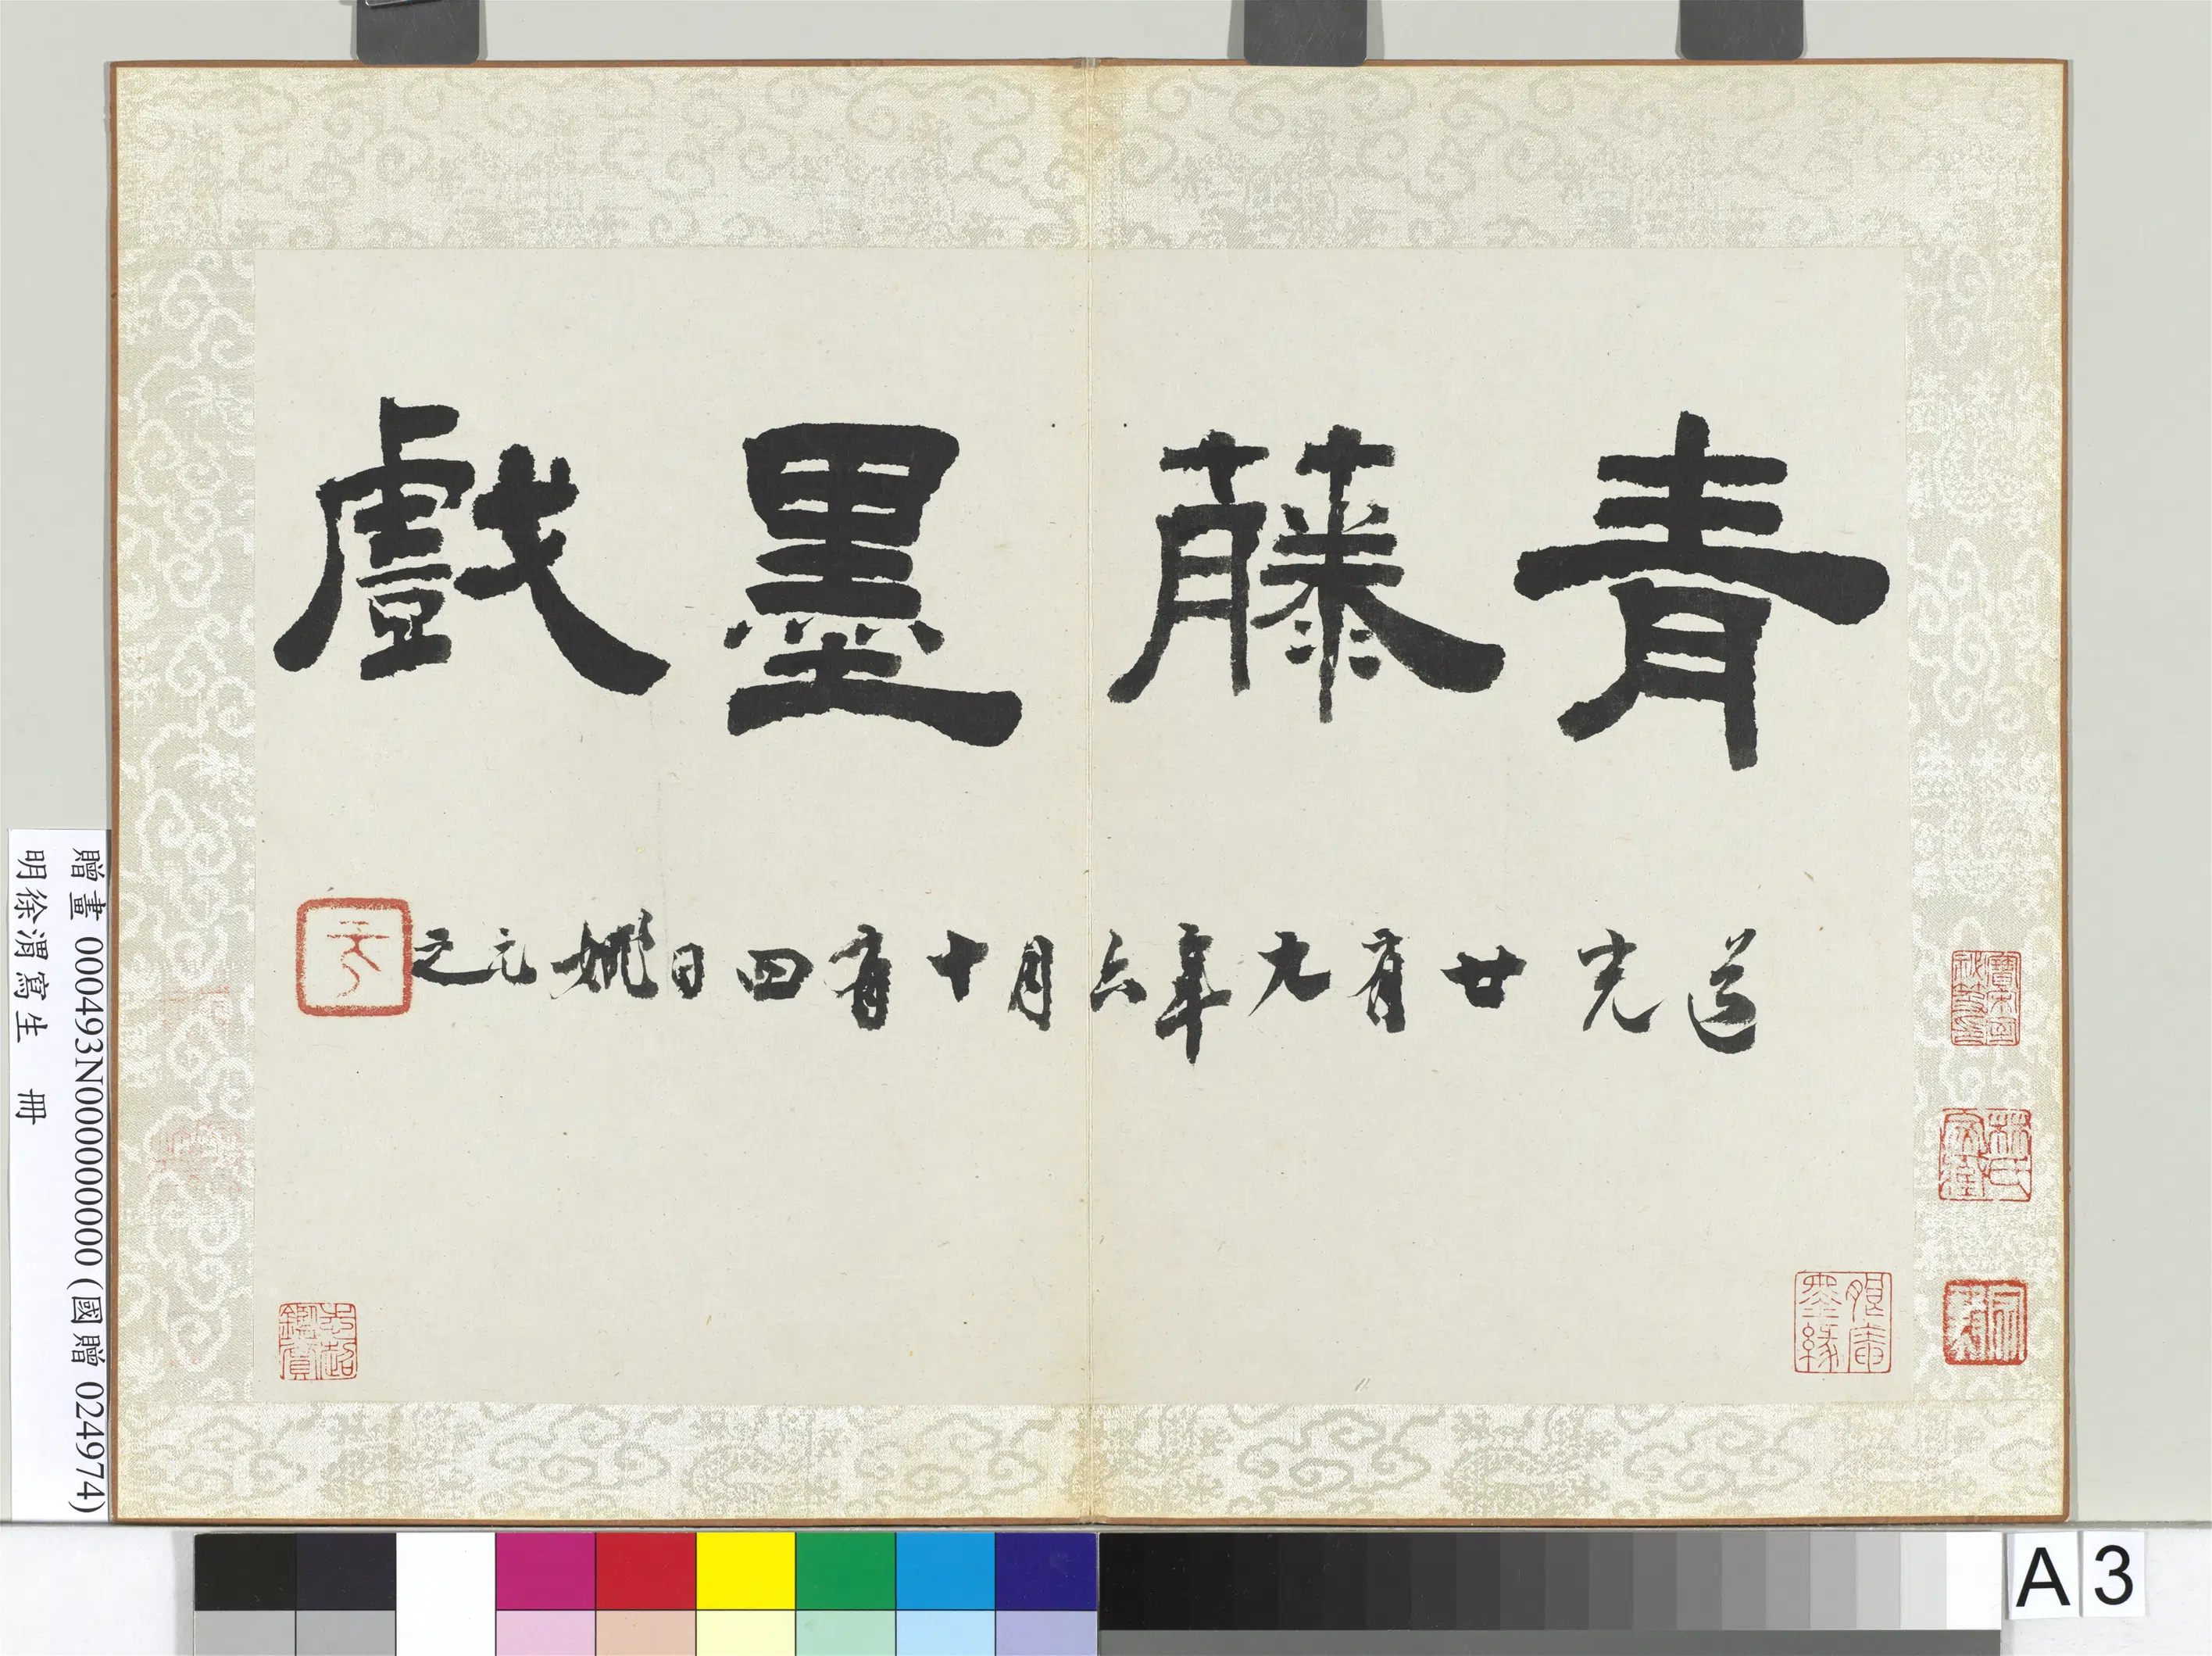 青藤墨戲
道光廿有九年六月十有四日姚元之
贈畫 000493N000000000 (國贈 024974)
明徐渭寫生 冊
A3